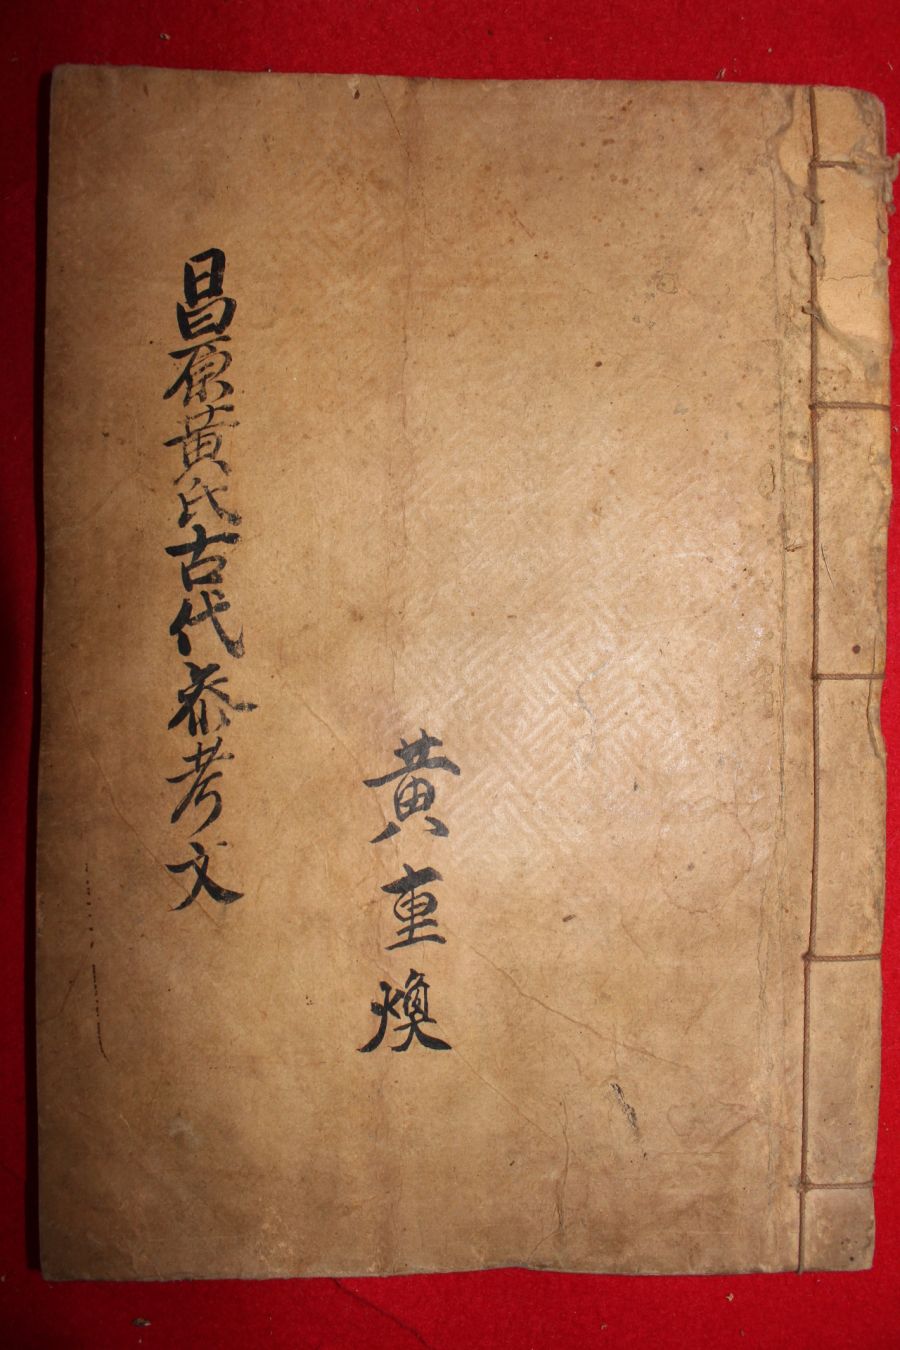 昌原黃氏古代叅考文
黃重煥